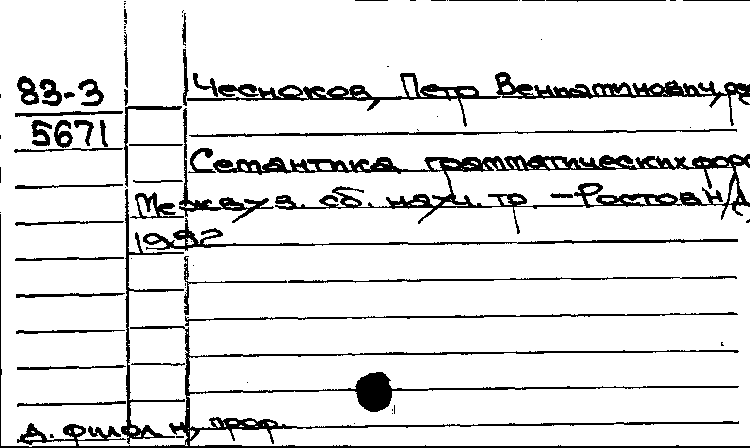 83-3 Чесноков, Петр Вениаминович, ре
5671
Семантика грамматических форм
Межвуз. сб. науч. тр. — Ростов н/Д
1982
д. филол. н, проф.